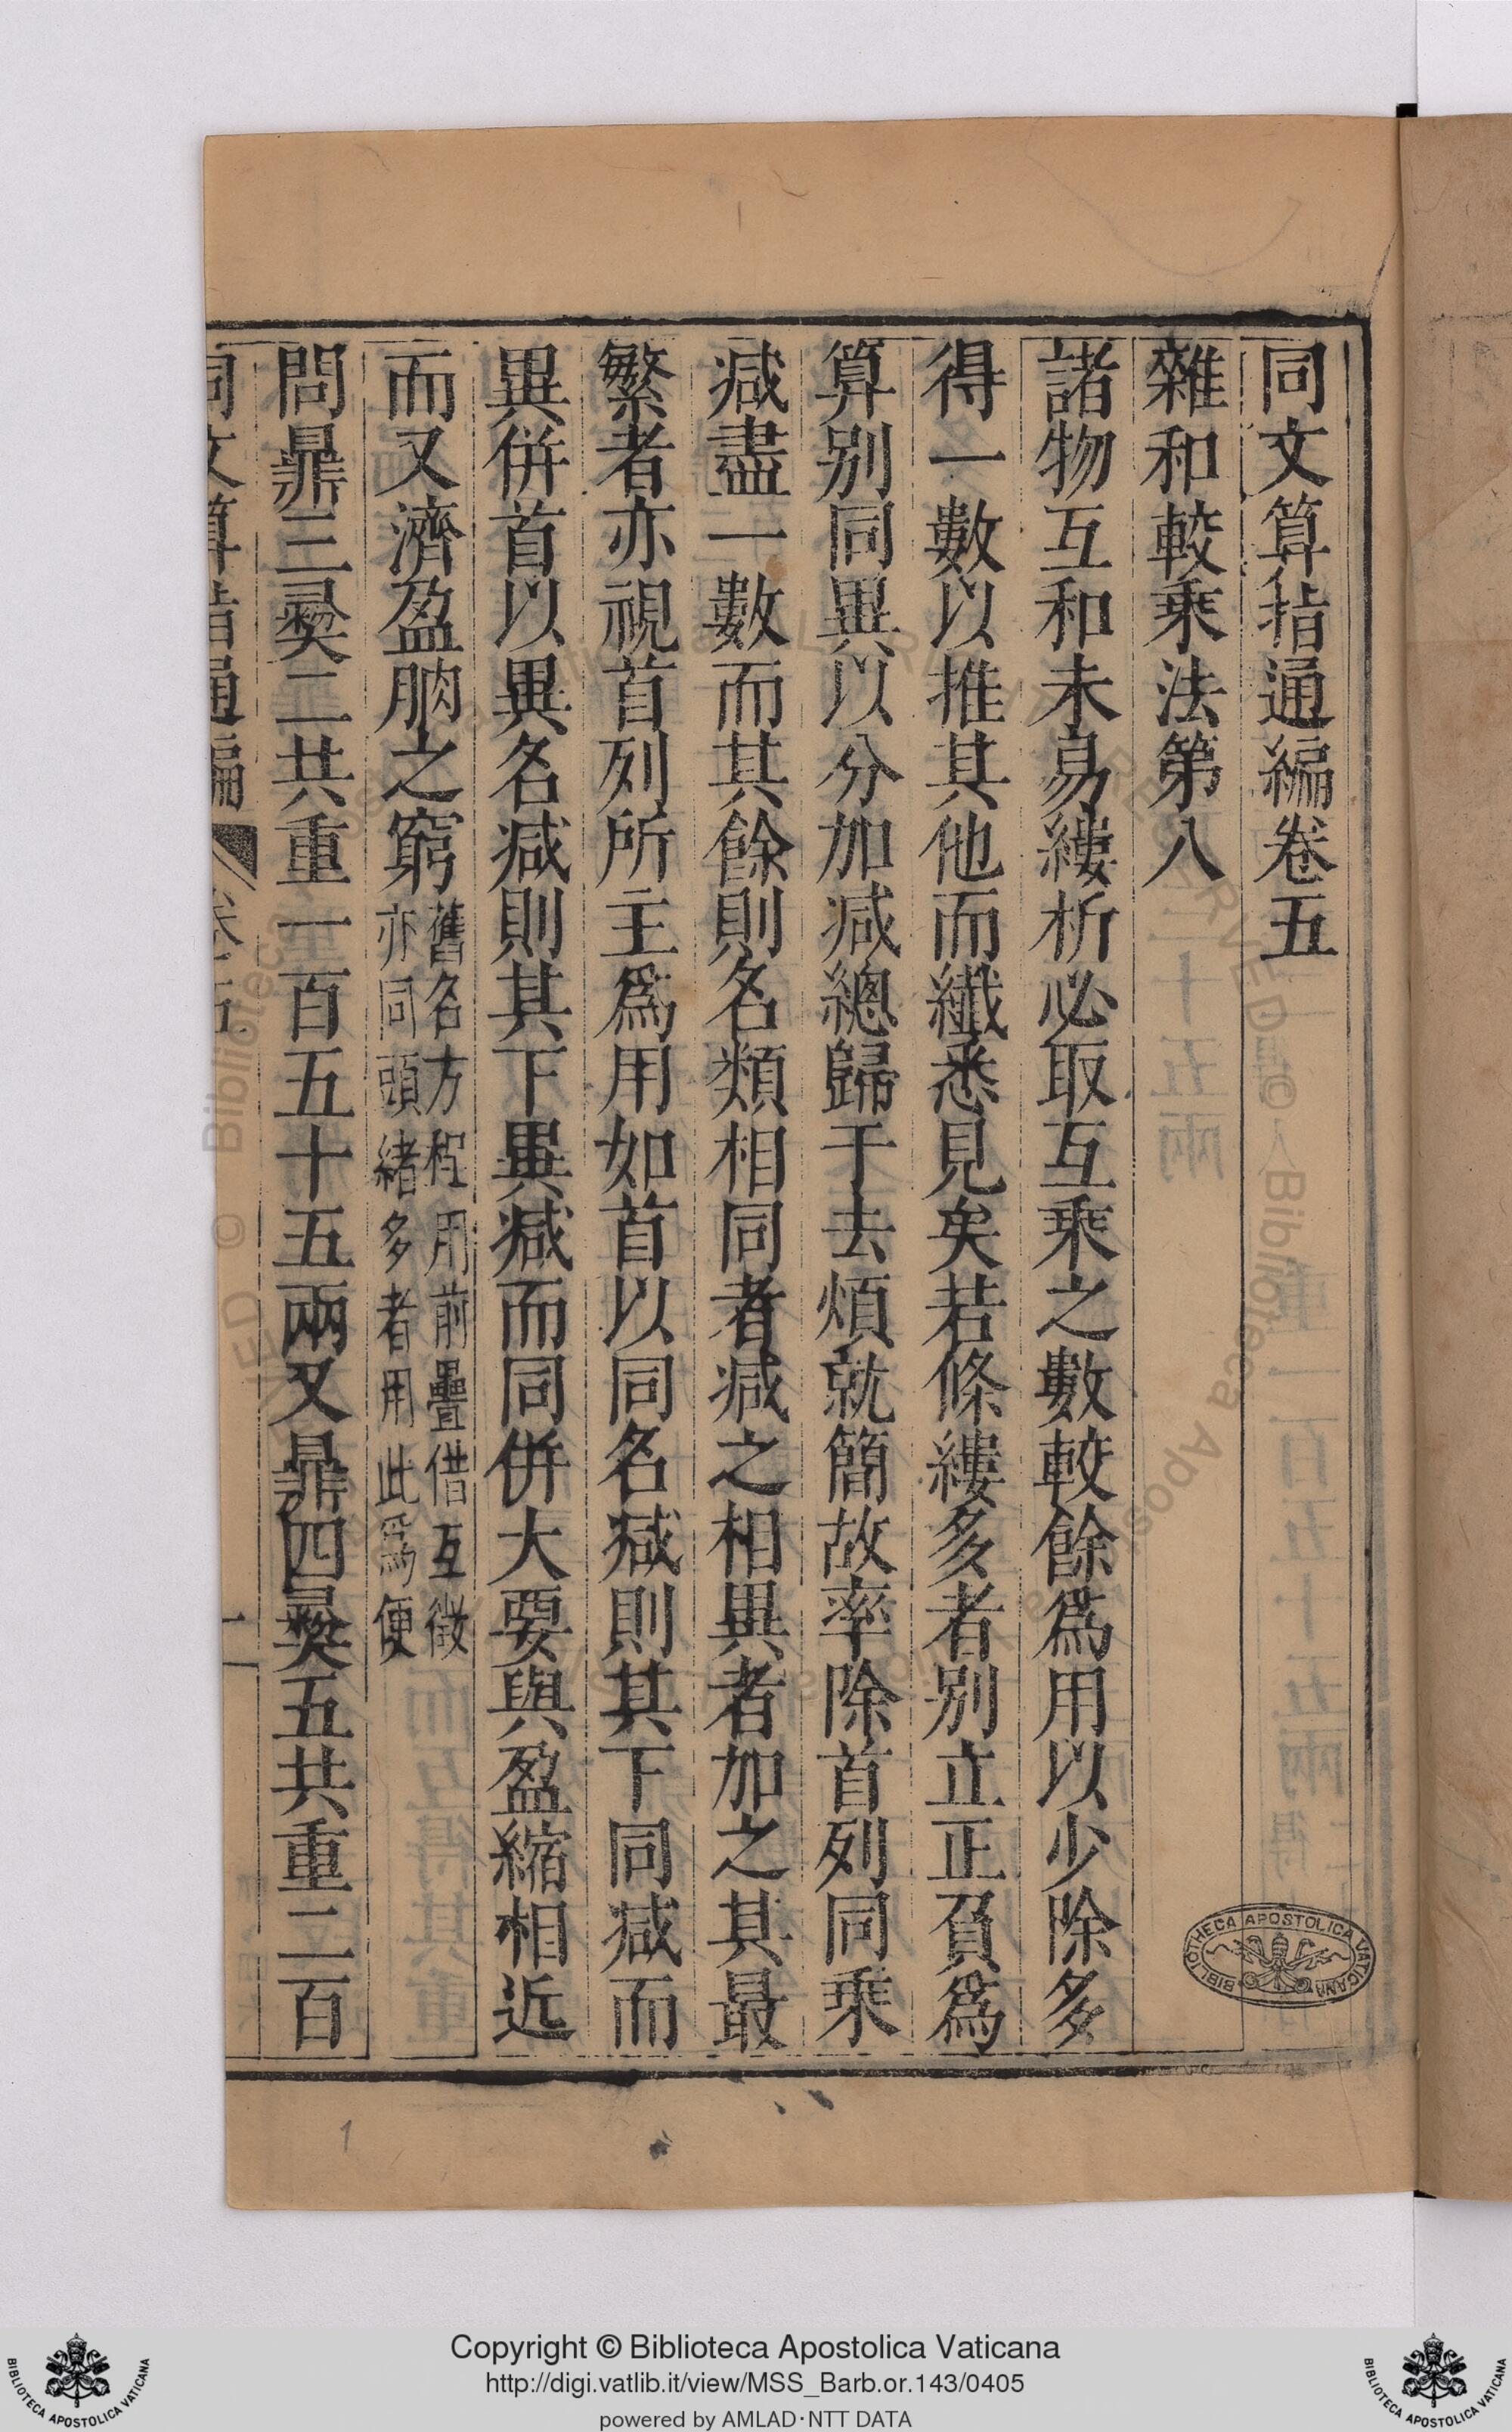 同文算指通編卷五
雜和較乘法第八
諸物互和未易縷析必取互乘之數較餘爲用以少除多
得一數以推其他而纖悉見矣若條縷多者別立正負爲
算別同異以分加減總歸于去煩就簡故率除首列同乘
減盡一數而其餘則名類相同者減之相異者加之其最
繁者亦視首列所主爲用如首以同名減則其下同減而
異併首以異名減則其下異減而同併大要與盈縮相近
而又濟盈朒之窮舊名方程用前疊借互徵
亦同頭緒多者用此爲便
問鼎三彝二共重一百五十五兩又鼎四彝五共重二百
同文算指通編 卷五 一
BIBLIOTHECA APOSTOLICA VATICANA
1
Copyright © Biblioteca Apostolica Vaticana
http://digi.vatlib.it/view/MSS_Barb.or.143/0405
powered by AMLAD·NTT DATA
BIBLIOTECA APOSTOLICA VATICANA
BIBLIOTECA APOSTOLICA VATICANA